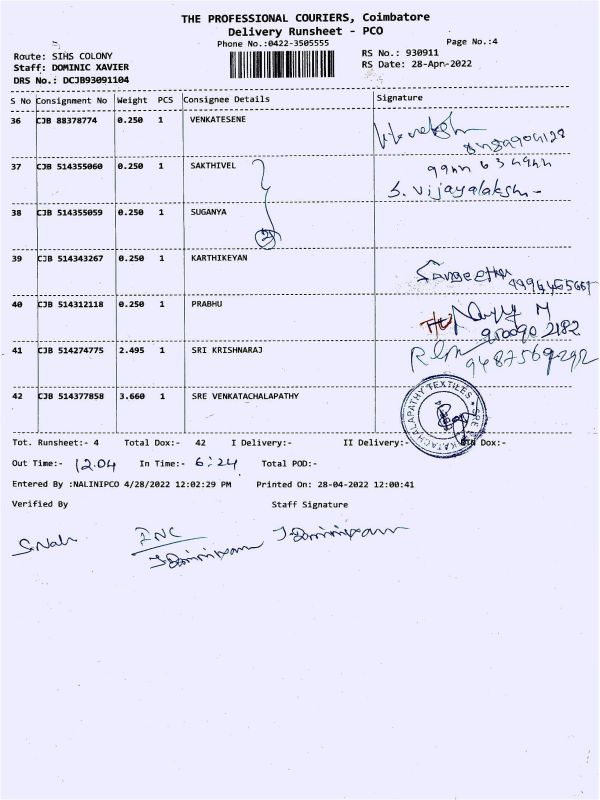 THE PROFESSIONAL COURIERS, Coimbatore
Delivery Runsheet - PCO
Phone No.:0422-3505555
Page No.:4
Route: SIHS COLONY
RS No.: 930911
Staff: DOMINIC XAVIER
RS Date: 28-Apr-2022
DRS No.: DCJB93091104
S No Consignment No Weight PCS Consignee Details Signature
36 CJB 88378774 0.250 1 VENKATESENE
37 CJB 514355060 0.250 1 SAKTHIVEL
S. Vijayalakshmi
38 CJB 514355059 0.250 1 SUGANYA
39 CJB 514343267 0.250 1 KARTHIKEYAN
Sangeetha
40 CJB 514312118 0.250 1 PRABHU
41 CJB 514274775 2.495 1 SRI KRISHNARAJ
9487569292
42 CJB 514377858 3.660 1 SRE VENKATACHALAPATHY
SRE VENKATACHALAPATHY TEXTILES
Tot. Runsheet:- 4 Total Dox:- 42 I Delivery:- II Delivery:- Dox:-
Out Time:- 12.04 In Time:- 6:24 Total POD:-
Entered By :NALINIPCO 4/28/2022 12:02:29 PM Printed On: 28-04-2022 12:00:41
Verified By Staff Signature